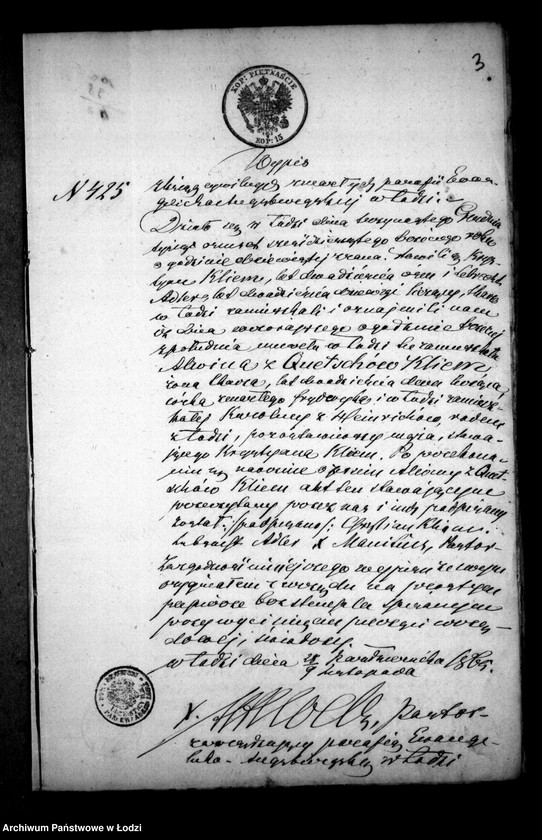 3
KOP: PIĘTNAŚCIE
KOP: 15
Wypis
N 425
z Ksiąg cywilnych zmarłych parafii Ewan-
gelicko Augsburgskiej w Łodzi.
Działo się w Łodzi dnia Grudnia
tysiąc ośmset sześćdziesiątego trzeciego roku
o godzinie dziewiątej zrana. Stawili się Kry-
styan Kliem, lat dwadzieścia ośm i Lebrecht
Adler, lat dwadzieścia liczący, tkacze
w Łodzi zamieszkali i oznajmili nam
iż dnia wczorajszego o godzinie
z południa umarła w Łodzi tu zamieszkała
Alwina z Quetschów Kliem,
żona tkacza, lat dwadzieścia dwa licząca,
córka zmarłego Fryderyka, i w Łodzi zamiesz-
kałej Karoliny z Heinrichów, rodem
z Łodzi, pozostawiwszy męża, stawa-
jącego Krystyana Kliem. Po przekona-
niu się naocznie o zejściu Alwiny z Quet-
schów Kliem akt ten stawającym
przeczytany przez nas i nich podpisany
został. /podpisano/: Christian Kliem.
Lebrecht Adler Pastor
Za zgodność niniejszego z swym
oryginałem i urzędu na prostym
papierze bez stempla
przy wyciśnięciu pieczęci urzę-
dowej,
w Łodzi dnia Października 1865.
9 Listopada
Pastor
parafię Ewange-
licko-Augsburgską w Łodzi
Archiwum Państwowe w Łodzi